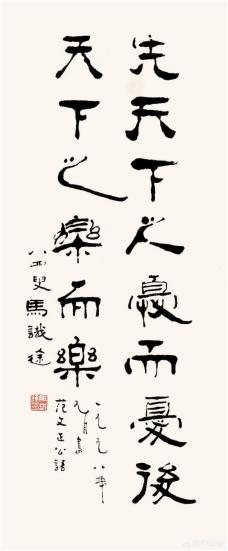 先天下之憂而憂後
天下之樂而樂
一九九八年
九月書
范文正公語
八四叟馬識途